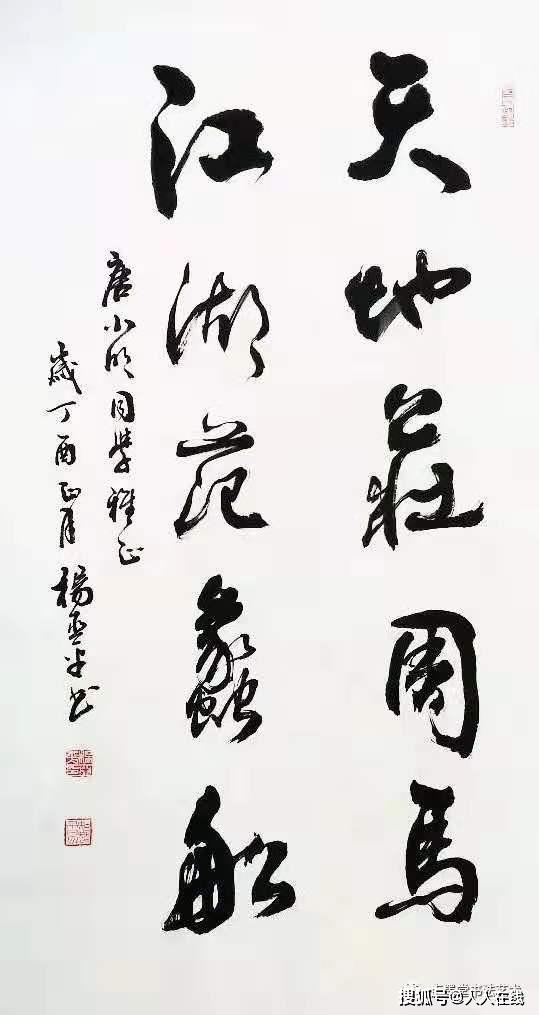 天地莊周馬
江湖范蠡船
唐小明同學雅正
歲丁酉正月 楊再平書
搜狐号@人人在线